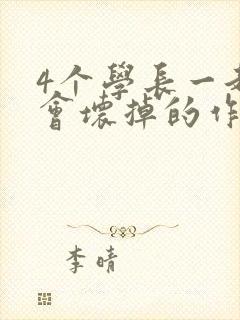 4个學長一
會壞掉的作
李晴